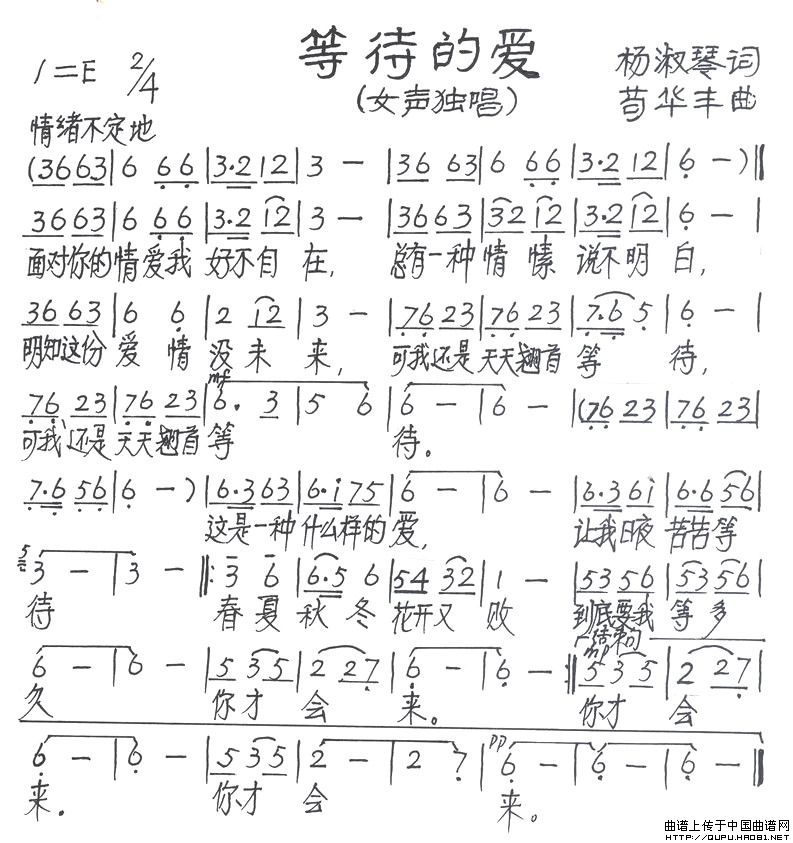 等待的爱
(女声独唱)
1=E 2/4
杨淑琴词
苟华丰曲
情绪不定地
(36 63|6 66|3·2 12|3 —|36 63|6 66|3·2 12|6 —)‖
36 63|6 66|3·2 12|3 —|36 63|32 12|3·2 12|6 —|
面对你的情爱我 好不自在, 总有一种情愫 说不明白,
36 63|6 6|2 12|3 —|76 23|76 23|7·6 5|6 —|
明知这份 爱 情 没 未 来, 可我还是 天天翘首 等 待,
mf
76 23|76 23|6· 3|5 6|6 —|6 —|(76 23|76 23|
可我还是 天天翘首 等 待。
7·6 56|6 —)|6·3 63|6·i 75|6 —|6 —|6·3 6i|6·6 56|
这是一种 什么样的 爱, 让我日夜 苦苦等
5 3 —|3 —|:3 6|6·5 6|54 32|1 —|53 56|53 56|
待 春 夏 秋 冬 花开又 败 到底要我 等 多
结束句
mp
6 —|6 —|5 35|2 27|6 —|6 —:‖5 35|2 27|
久 你才 会 来。 你才 会
pp
6 —|6 —|5 35|2 —|2 7|6 —|6 —|6 —‖
来。 你才 会 来。
曲谱上传于中国曲谱网
HTTP://QUPU.HAO81.NET